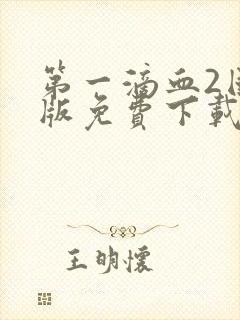 第一滴血2国
版免费下载
王明懷